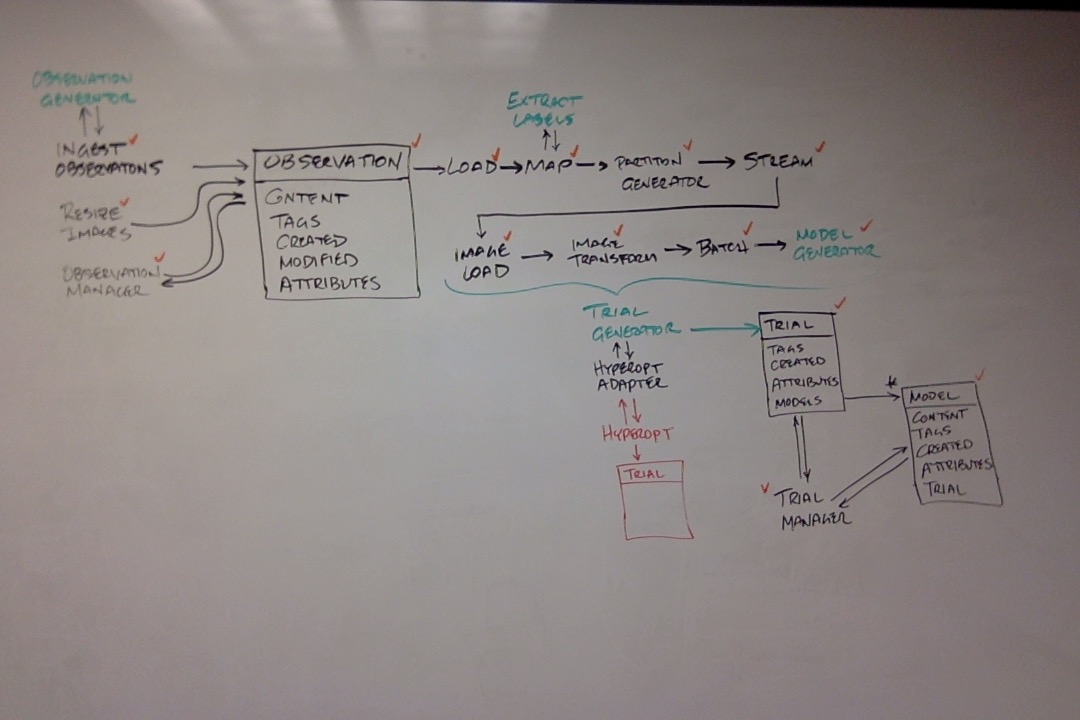 OBSERVATION
GENERTOR
INGEST
OBSERVATONS
RESIZE
IMAGES
OBSERVATION
MANAGER
OBSERVATION
CNTENT
TAGS
CREATED
MODIFIED
ATTRIBUTES
LOAD
MAP
EXTRACT
LABELS
PARTITON
GENERATOR
STREAM
IMAGE
LOAD
IMAGE
TRANSFORM
BATCH
MODEL
GENERATOR
TRIAL
GENERATOR
HYPEROPT
ADAPTER
HYPEROPT
TRIAL
TRIAL
TAGS
CREATED
ATTRIBUTES
MODELS
*
MODEL
CONTENT
TAGS
CREATED
ATTRIBUTES
TRIAL
TRIAL
MANAGER